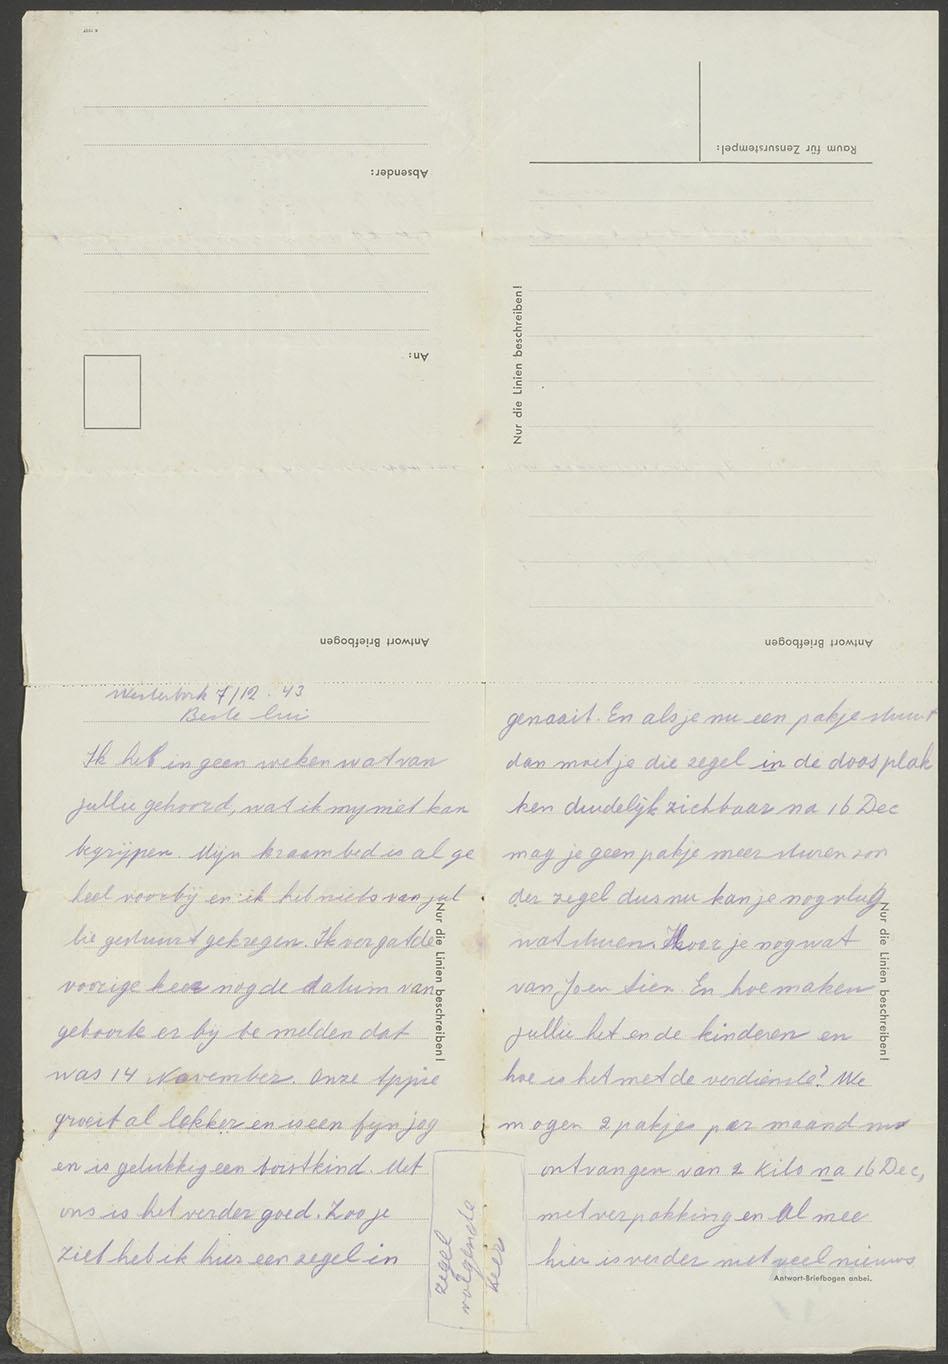 Absender:
An:
Antwort Briefbogen
Raum für Zensurstempel:
Nur die Linien beschreiben!
Antwort Briefbogen
Westerbork 7/12. 43
Beste lui
Ik heb in geen weken wat van
jullie gehoord, wat ik my niet kan
begrijpen. Mijn kraambed is al ge
heel voorbij en ik heb niets van jul
lie gestuurt gekregen. Ik vergat de
voorige keer nog de datum van
geboorte er bij te melden dat
was 14 November. Onze Appie
groeit al lekker en is een fijn jog
en is gelukkig een borstkind. Met
ons is het verder goed. Zoo je
ziet heb ik hier een zegel in
Nur die Linien beschreiben!
genaait. En als je nu een pakje stuurt
dan moet je die zegel in de doos plak
ken duidelijk zichtbaar na 16 Dec
mag je geen pakje meer sturen zon
der zegel dus nu kan je nog vlug
wat sturen. Hoor je nog wat
van Jo en Sien. En hoe maken
jullie het en de kinderen en
hoe is het met de verdienste? We
mogen 2 pakjes per maand
ontvangen van 2 kilo na 16 Dec,
met verpakking en al mee
hier is verder niet veel nieuws
Nur die Linien beschreiben!
Antwort-Briefbogen anbei.
zegel
volgende
keer